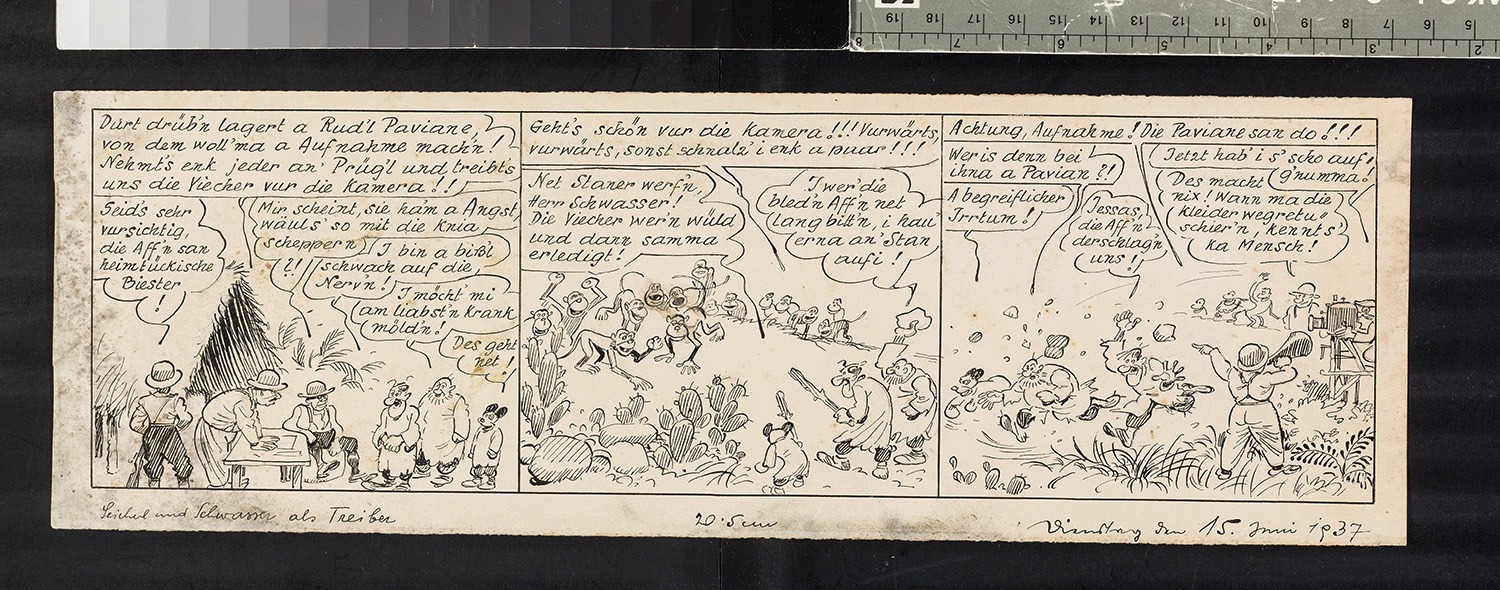 Durt drüb'n lagert a Rud'l Paviane,
von dem woll'ma a Aufnahme mach'n!
Nehmt's enk jeder an' Prüg'l und treibt's
uns die Viecher vur die Kamera!!
Seid's sehr
vursichtig,
die Aff'n san
heimtückische
Biester
!
Mir scheint, sie ha'm a Angst,
wäul's so mit die Knia
scheppern
?!
I bin a bißl
schwach auf die
Nerv'n!
I möcht' mi
am liabst'n krank
möld'n!
Des geht
net!
Geht's schön vur die Kamera!!! Vurwärts,
vurwärts, sonst schnalz' i enk a paar!!!
Net Staner werf'n,
Herr Schwasser!
Die Viecher wer'n wüld
und dann samma
erledigt!
I wer' die
bled'n Aff'n net
lang bitt'n, i hau'
erna an' Stan
aufi!
Achtung, Aufnahme! Die Paviane san do!!!
Wer is denn bei
ihna a Pavian?!
A begreiflicher
Irrtum!
Jessas,
die Aff'n
derschlag'n
uns!
Jetzt hab' i s' scho auf-
g'numma!
Des macht
nix! Wann ma die
Kleider wegretu-
schier'n, kennt's
ka Mensch!
Seicherl und Schwasser als Treiber
20·5 cm
Dienstag den 15. Juni 1937
19 18 17 16 15 14 13 12 11 10 9 8 7 6 5
8 7 6 5 4 3 2